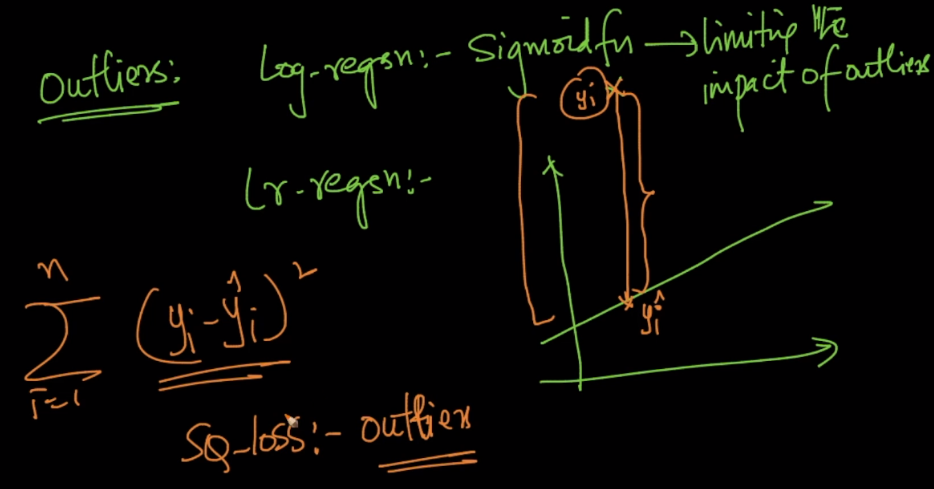 Outliers: Log-regsn:- Sigmoid fn → limiting the
impact of outliers
yi
Lr-regsn:-
n
∑ (yi - ŷi)²
i=1
ŷi
SQ-loss:- outlier